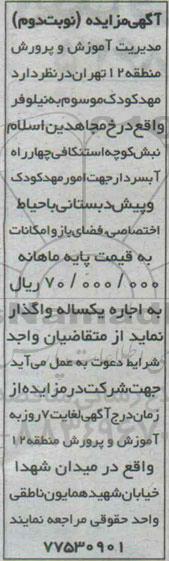 آگهی مزایده (نوبت دوم)
مدیریت آموزش و پرورش
منطقه ۱۲ تهران در نظر دارد
مهد کودک موسوم به نیلوفر
واقع در خ مجاهدین اسلام
نبش کوچه استنکافی چهارراه
آبسردار جهت امور مهد کودک
و پیش دبستانی با حیاط
اختصاصی، فضای باز و امکانات
به قیمت پایه ماهانه
۷۰/۰۰۰/۰۰۰ ریال
به اجاره یکساله واگذار
نماید از متقاضیان واجد
شرایط دعوت به عمل می آید
جهت شرکت در مزایده از
زمان درج آگهی لغایت ۷ روز به
آموزش و پرورش منطقه ۱۲
واقع در میدان شهدا
خیابان شهید همایون ناطقی
واحد حقوقی مراجعه نمایند
۷۷۵۳۰۹۰۱